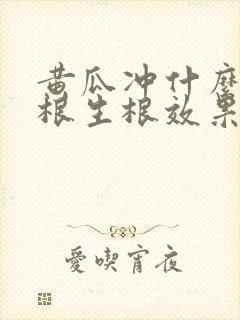 黄瓜冲什麽
根生根效果
愛喫宵夜